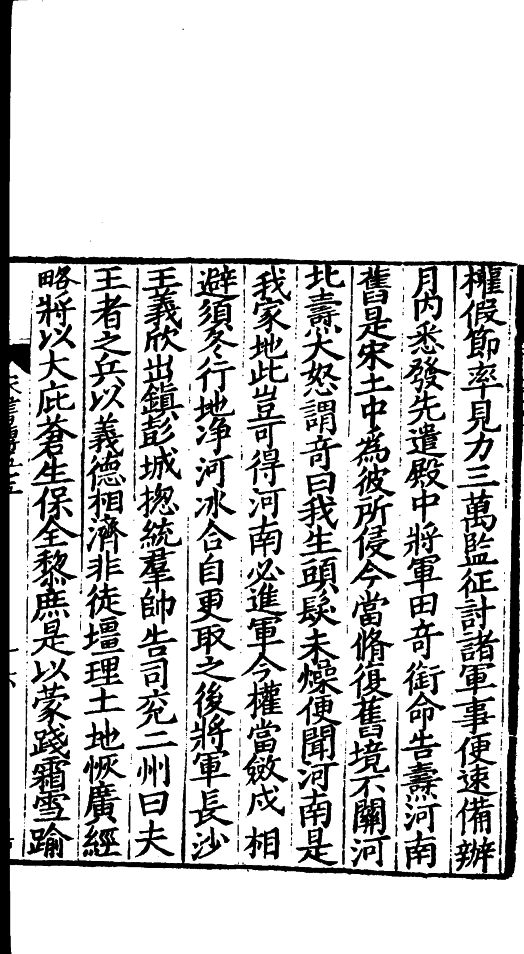 權假節率見力三萬監征討諸軍事便速備辦
月內悉發先遣殿中將軍田奇銜命告燾河南
舊是宋土中為彼所侵今當脩復舊境不關河
北燾大怒謂奇曰我生頭髮未燥便聞河南是
我家地此豈可得河南必進軍今權當斂戍相
避須冬行地淨河冰合自更取之後將軍長沙
王義欣出鎮彭城揔統羣帥告司兖二州曰夫
王者之兵以義德相濟非徒壃理土地恢廣經
略將以大庇蒼生保全黎庶是以蒙踐霜雪踰